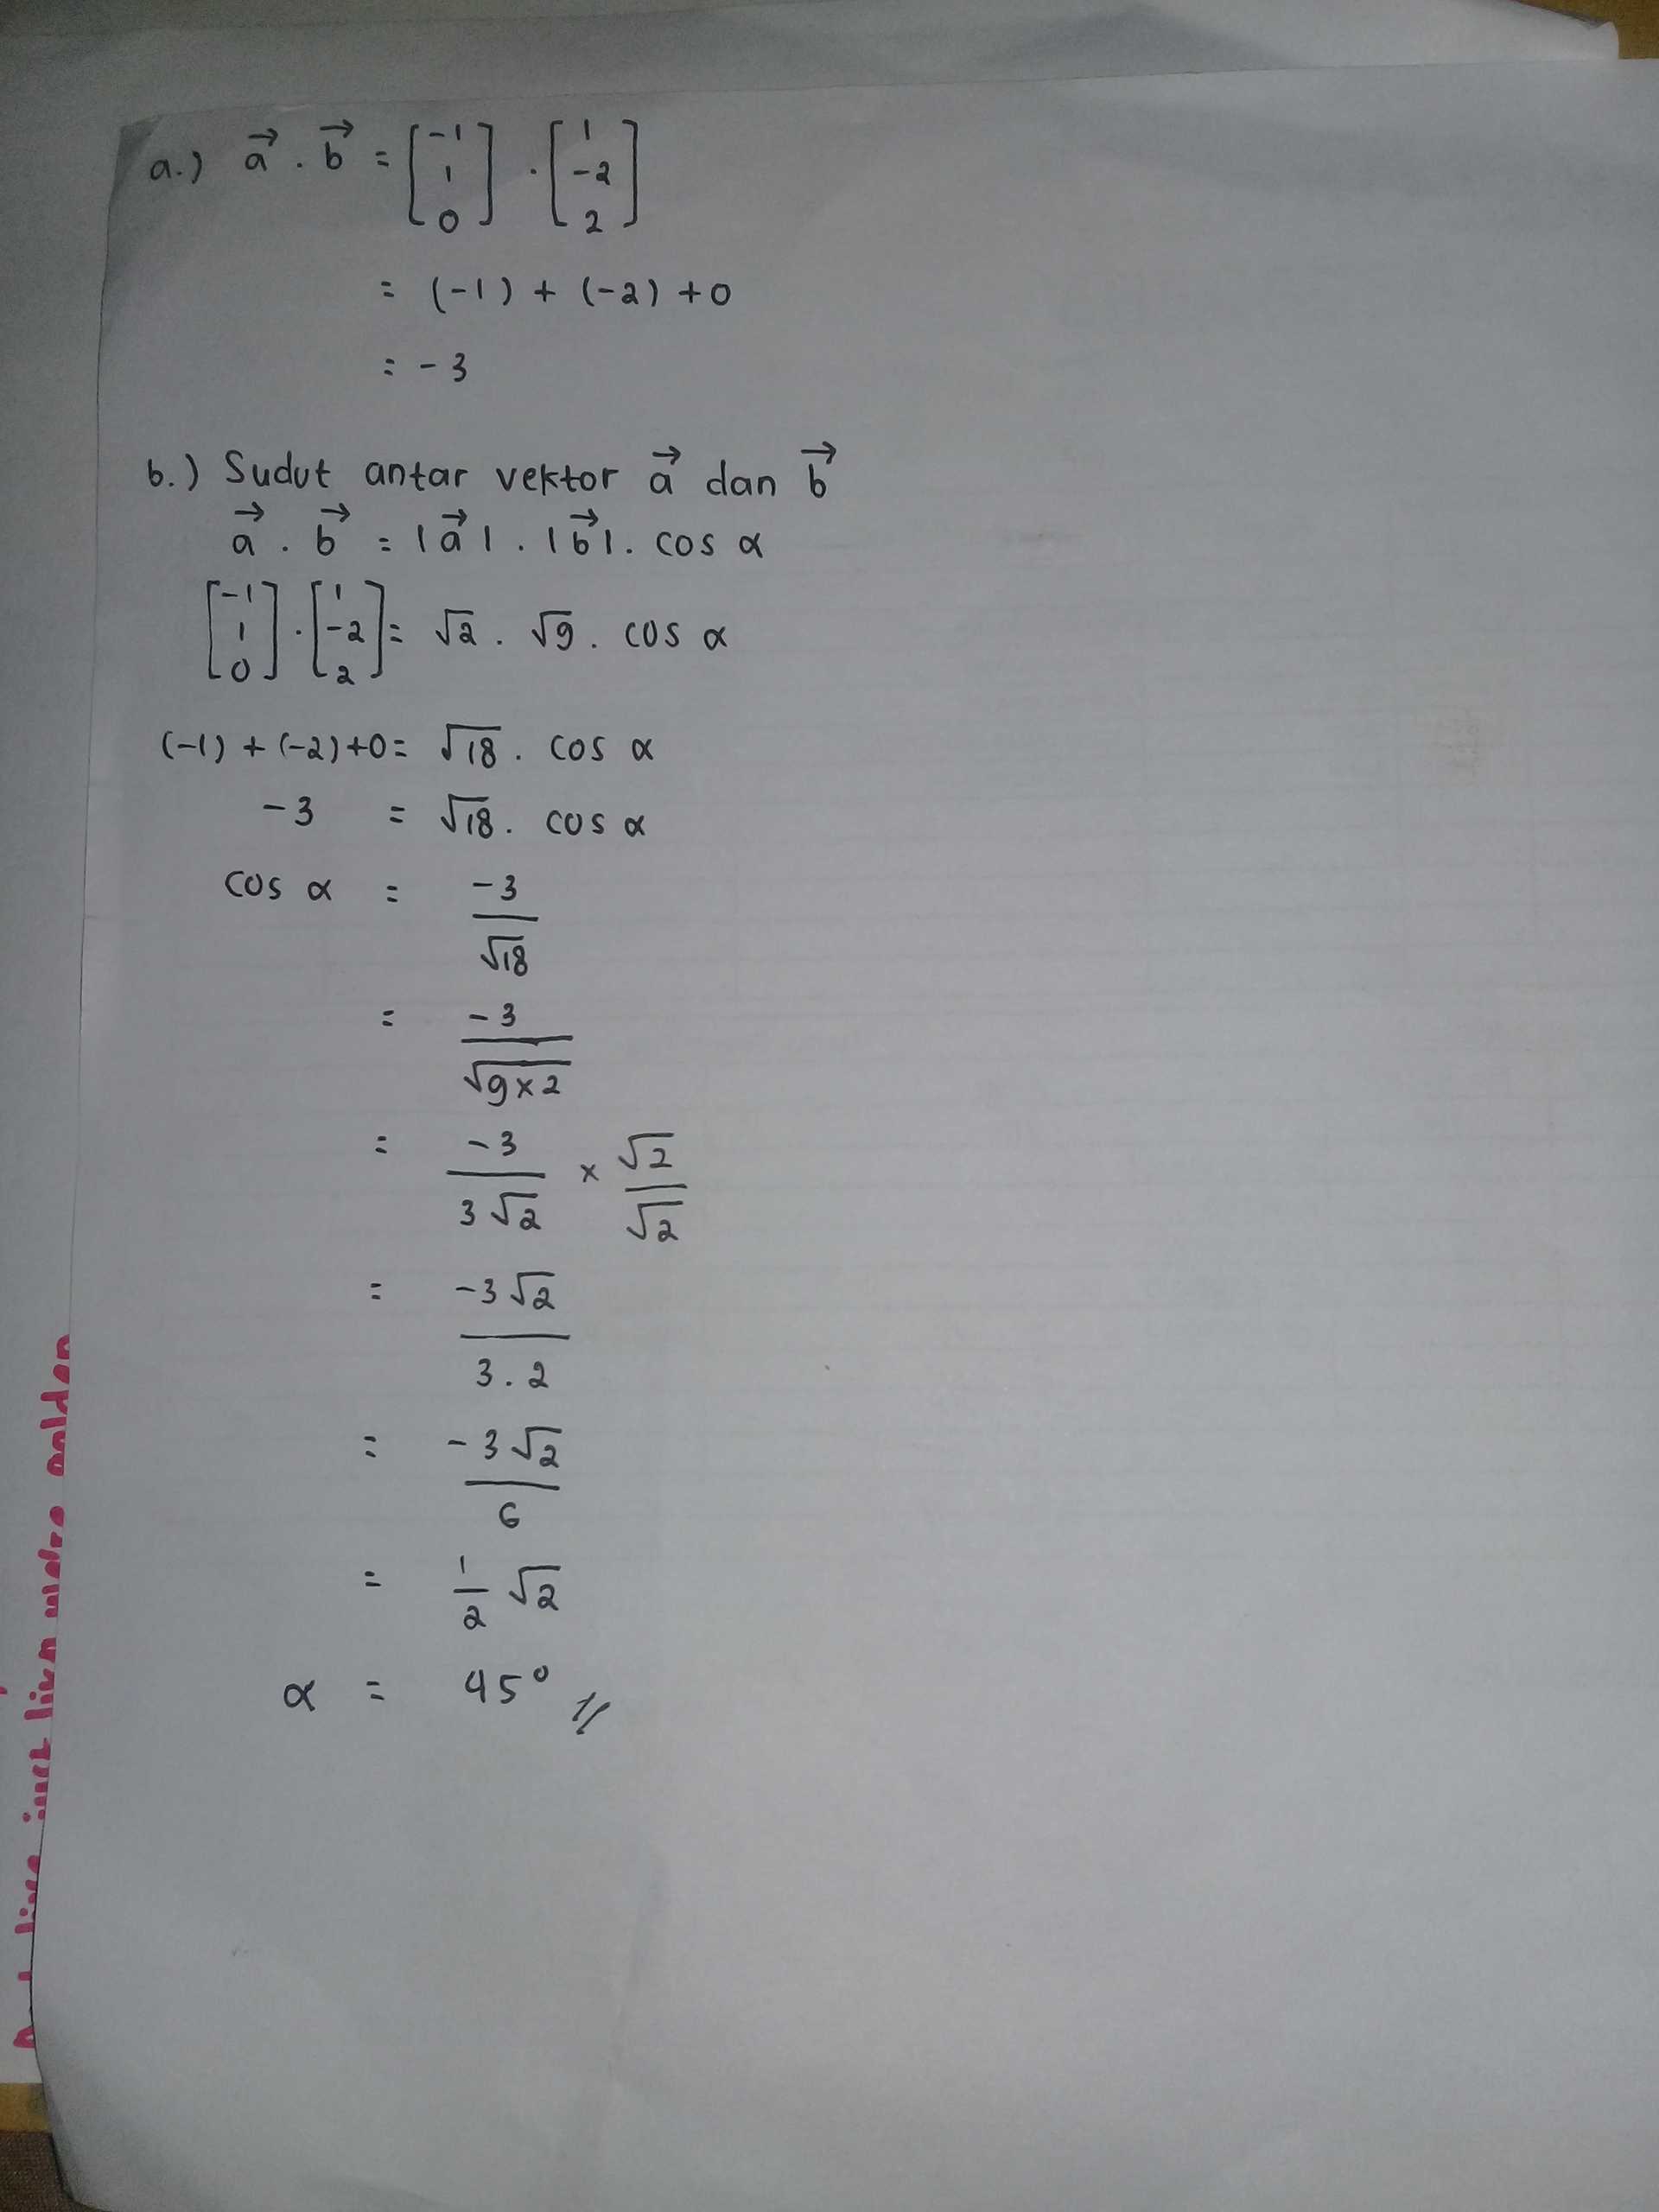 a.) a⃗ . b⃗ = [-1 1 0] . [1 -2 2]
= (-1) + (-2) + 0
= -3
b.) Sudut antar vektor a⃗ dan b⃗
a⃗ . b⃗ = |a⃗| . |b⃗| . cos α
[-1 1 0] . [1 -2 2] = √2 . √9 . cos α
(-1) + (-2) + 0 = √18 . cos α
-3 = √18 . cos α
cos α = -3/√18
= -3/√(9×2)
= -3/3√2 × √2/√2
= -3√2/3.2
= -3√2/6
= 1/2 √2
α = 45° //